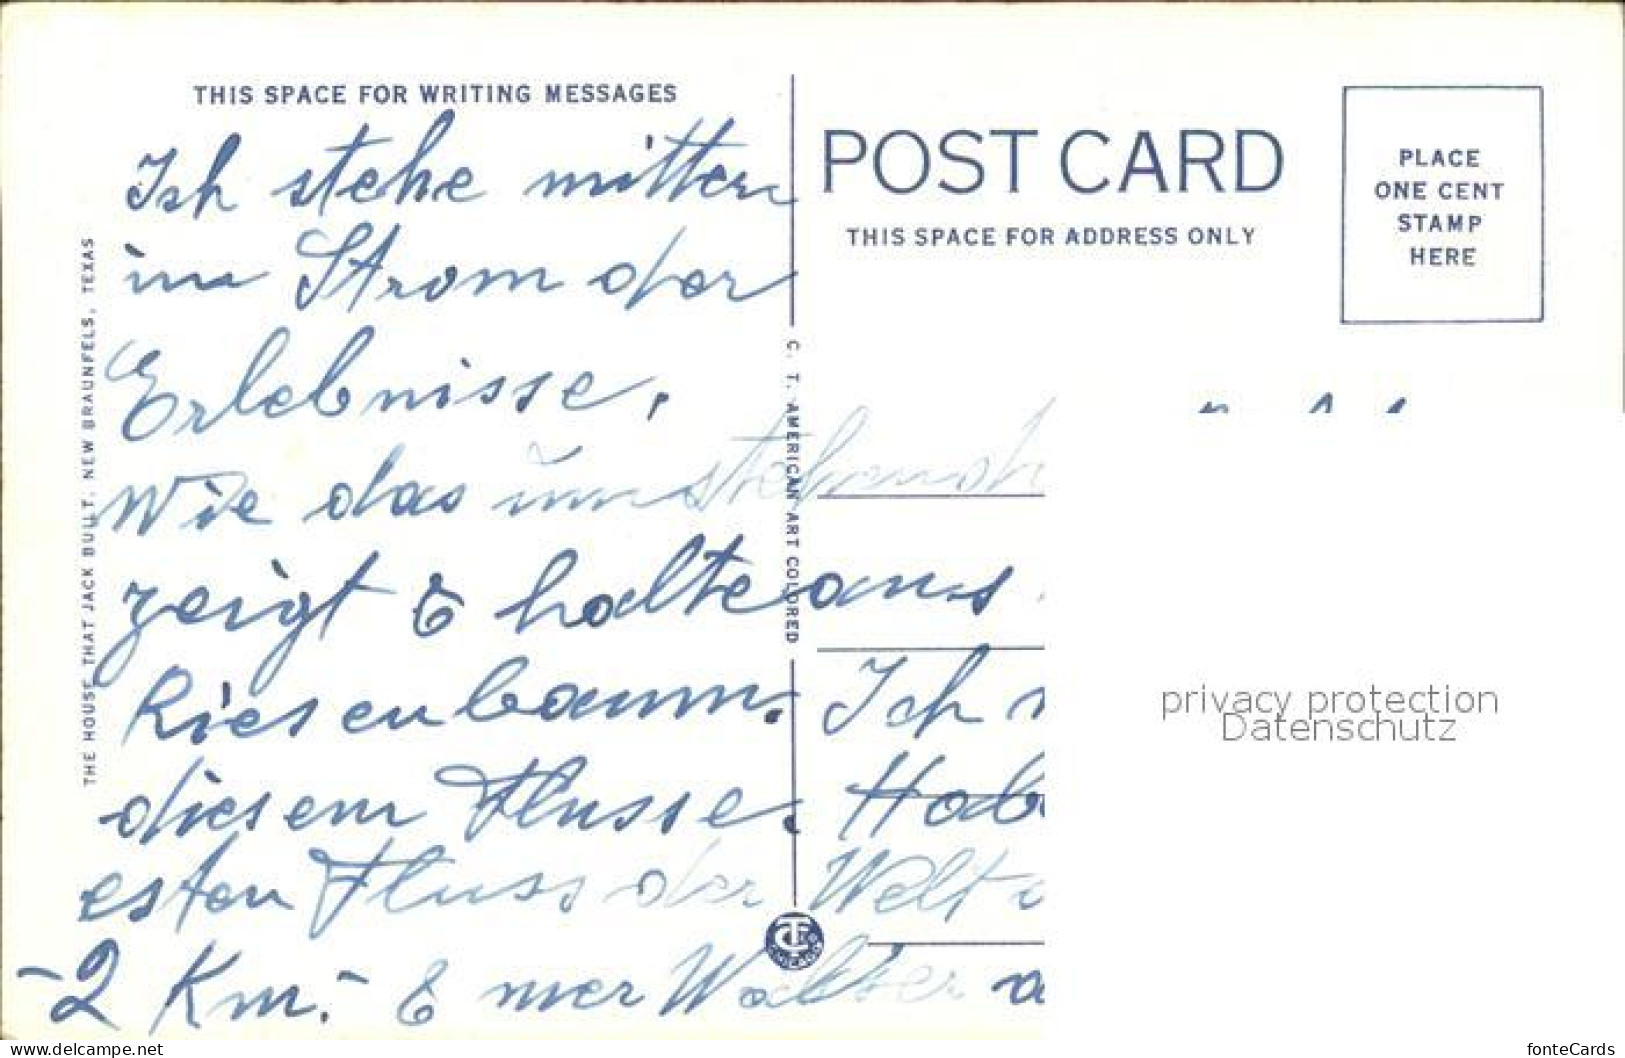 THIS SPACE FOR WRITING MESSAGES
Ich stehe mitten
im Strom der
Erlebnisse.
Wie das
zeigt & halte aus.
Riesenbaum. Ich
diesem Flusse. Hab
esten Fluss der Welt
-2 Km.- & Wasser
THE HOUSE THAT JACK BUILT, NEW BRAUNFELS, TEXAS
C. T. AMERICAN ART COLORED
POST CARD
THIS SPACE FOR ADDRESS ONLY
PLACE
ONE CENT
STAMP
HERE
privacy protection
Datenschutz
www.delcampe.net
fonteCards